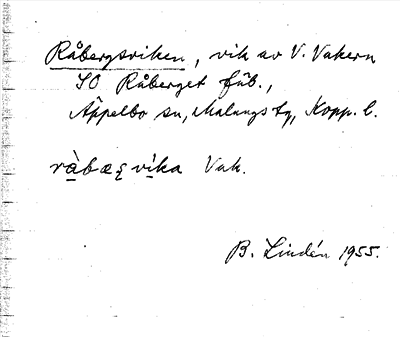 Råbergsviken, vik av V. Vakern
SO Råberget fäb.,
Äppelbo sn, Malungs tg, Kopp. l.
vika Vak.
B. Lindén 1955.